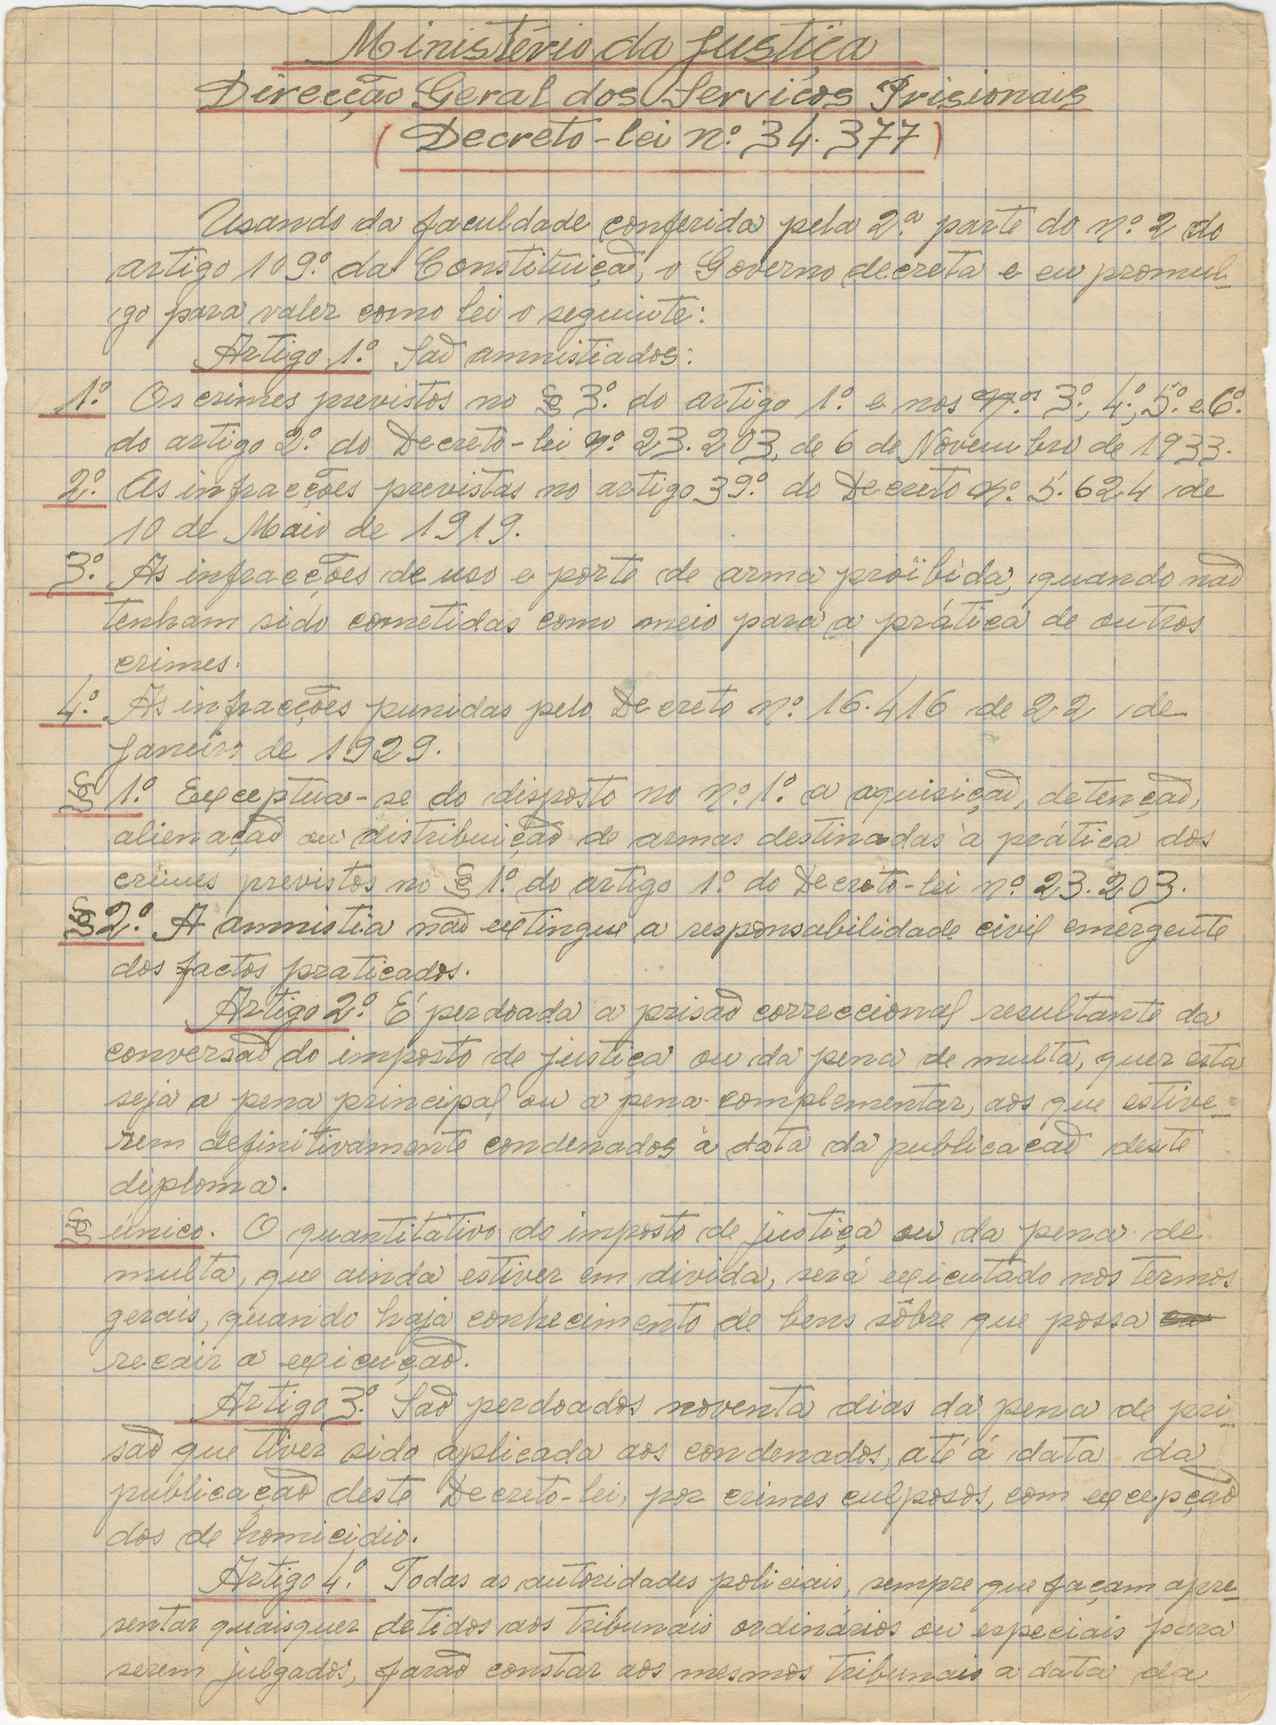 Ministério da Justiça
Direcção Geral dos Serviços Prisionais
(Decreto-lei nº 34.377)
Usando da faculdade conferida pela 2ª parte do nº 2 do
artigo 109º da Constituição, o Governo decreta e eu promul-
go para valer como lei o seguinte:
Artigo 1º São amnistiados:
1º Os crimes previstos no § 3º do artigo 1º e nos nºs 3º, 4º, 5º e 6º
do artigo 2º do Decreto-lei nº 23.203, de 6 de Novembro de 1933.
2º As infracções previstas no artigo 39º do Decreto nº 5.624 de
10 de Maio de 1919.
3º As infracções de uso e porte de arma proïbida, quando não
tenham sido cometidas como meio para a prática de outros
crimes.
4º As infracções punidas pelo Decreto nº 16.416 de 22 de
Janeiro de 1929.
§ 1º Exceptua-se do disposto no nº 1º a aquisição, detenção,
alienação ou distribuição de armas destinadas à prática dos
crimes previstos no § 1º do artigo 1º do Decreto-lei nº 23.203.
§ 2º A amnistia não extingue a responsabilidade civil emergente
dos factos praticados.
Artigo 2º É perdoada a prisão correccional resultante da
conversão do imposto de justiça ou da pena de multa, quer esta
seja a pena principal ou a pena complementar, aos que estive-
rem definitivamente condenados à data da publicação deste
diploma.
§ único. O quantitativo do imposto de justiça ou da pena de
multa, que ainda estiver em divida, será executado nos termos
gerais, quando haja conhecimento de bens sôbre que possa
recair a execução.
Artigo 3º São perdoados noventa dias da pena de pri-
são que tiver sido aplicada aos condenados, até á data da
publicação deste Decreto-lei, por crimes culposos, com excepção
dos de homicidio.
Artigo 4º Todas as autoridades policiais, sempre que façam apre-
sentar quaisquer detidos aos tribunais ordinários ou especiais para
serem julgados, farão constar aos mesmos tribunais a data da